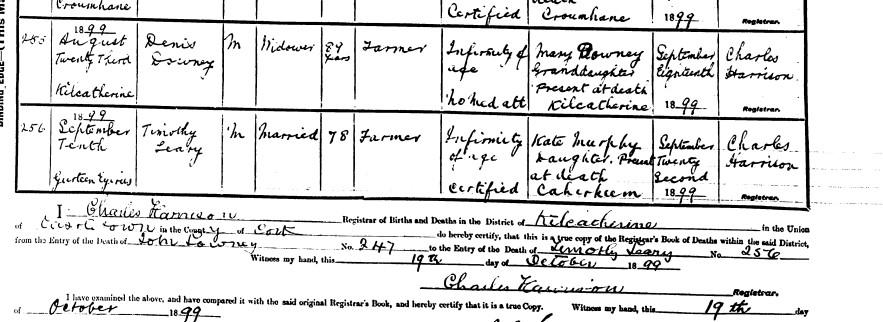 Croumhane
Certified
Croumhane
1899
Registrar.
255
1899
August
Twenty Third
Kilcatherine
Denis
Downey
M
Widower
89
years
Farmer
Infirmity of
age
no Med att
Mary Downey
Granddaughter
Present at death
Kilcatherine
September
Eighteenth
1899
Charles
Harrison
Registrar.
256
1899
September
Tenth
Gurteen Eyeries
Timothy
Leary
M
Married
78
Farmer
Infirmity
of age
Certified
Kate Murphy
Daughter. Present
at death
Caherkeem
September
Twenty
Second
1899
Charles
Harrison
Registrar.
I Charles Harrison Registrar of Births and Deaths in the District of Kilcatherine in the Union
of Castletown in the County of Cork do hereby certify, that this is a true copy of the Registrar's Book of Deaths within the said District,
from the Entry of the Death of John Downey No. 247 to the Entry of the Death of Timothy Leary No. 256
Witness my hand, this 19th day of October 1899
Charles Harrison Registrar.
I have examined the above, and have compared it with the said original Registrar's Book, and hereby certify that it is a true Copy. Witness my hand, this 19th day
of October 1899